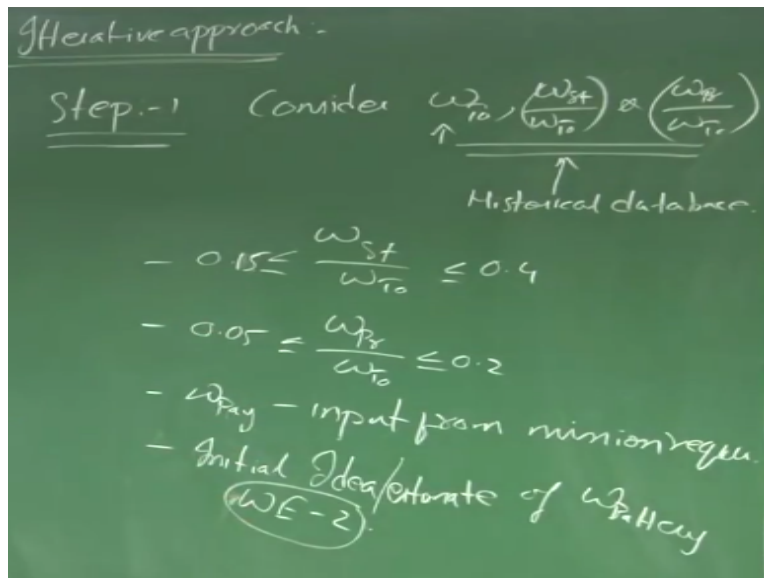 Itterative approach :-
Step.-1 Consider W_To, (W_St/W_To) & (W_Pr/W_To)
↑ ↑
Historical database.
- 0.15 ≤ W_St/W_To ≤ 0.4
- 0.05 ≤ W_Pr/W_To ≤ 0.2
- W_Pay - input from mission requ.
- Initial Idea/estimate of W_Battery
WE-2.